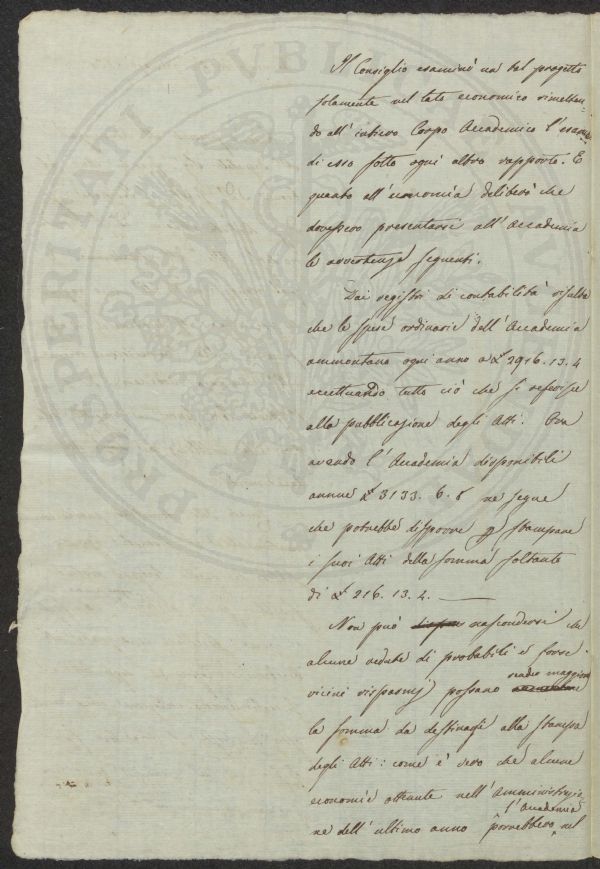 PROSPERITATI PVBLICAE
Il Consiglio esaminò un tal progetto
solamente nel lato economico rimetten-
do all'intiero Corpo Accademico l'esame
di esso sotto ogni altro rapporto. E
quanto all'economia deliberò che
dovessero presentarsi all'Accademia
le avvertenze seguenti.
Dai registri di contabilità risulta
che le spese ordinarie dell'Accademia
ammontano ogni anno a £ 2916.13.4
eccettuando tutto ciò che si referisce
alla pubblicazione degli Atti. Ora
avendo l'Accademia disponibili
annue £ 3133.6.8 ne segue
che potrebbe disporre p stampare
i suoi Atti della somma soltanto
di £ 216.13.4. —
Non può nascondersi che
alcune vedute di probabili e forse
vicini risparmj possano render maggiore
la somma da destinarsi alla stampa
degli Atti: come è vero che alcune
economie ottenute nell'Amministrazio-
ne dell'ultimo anno porrebbero l'Accademia nel